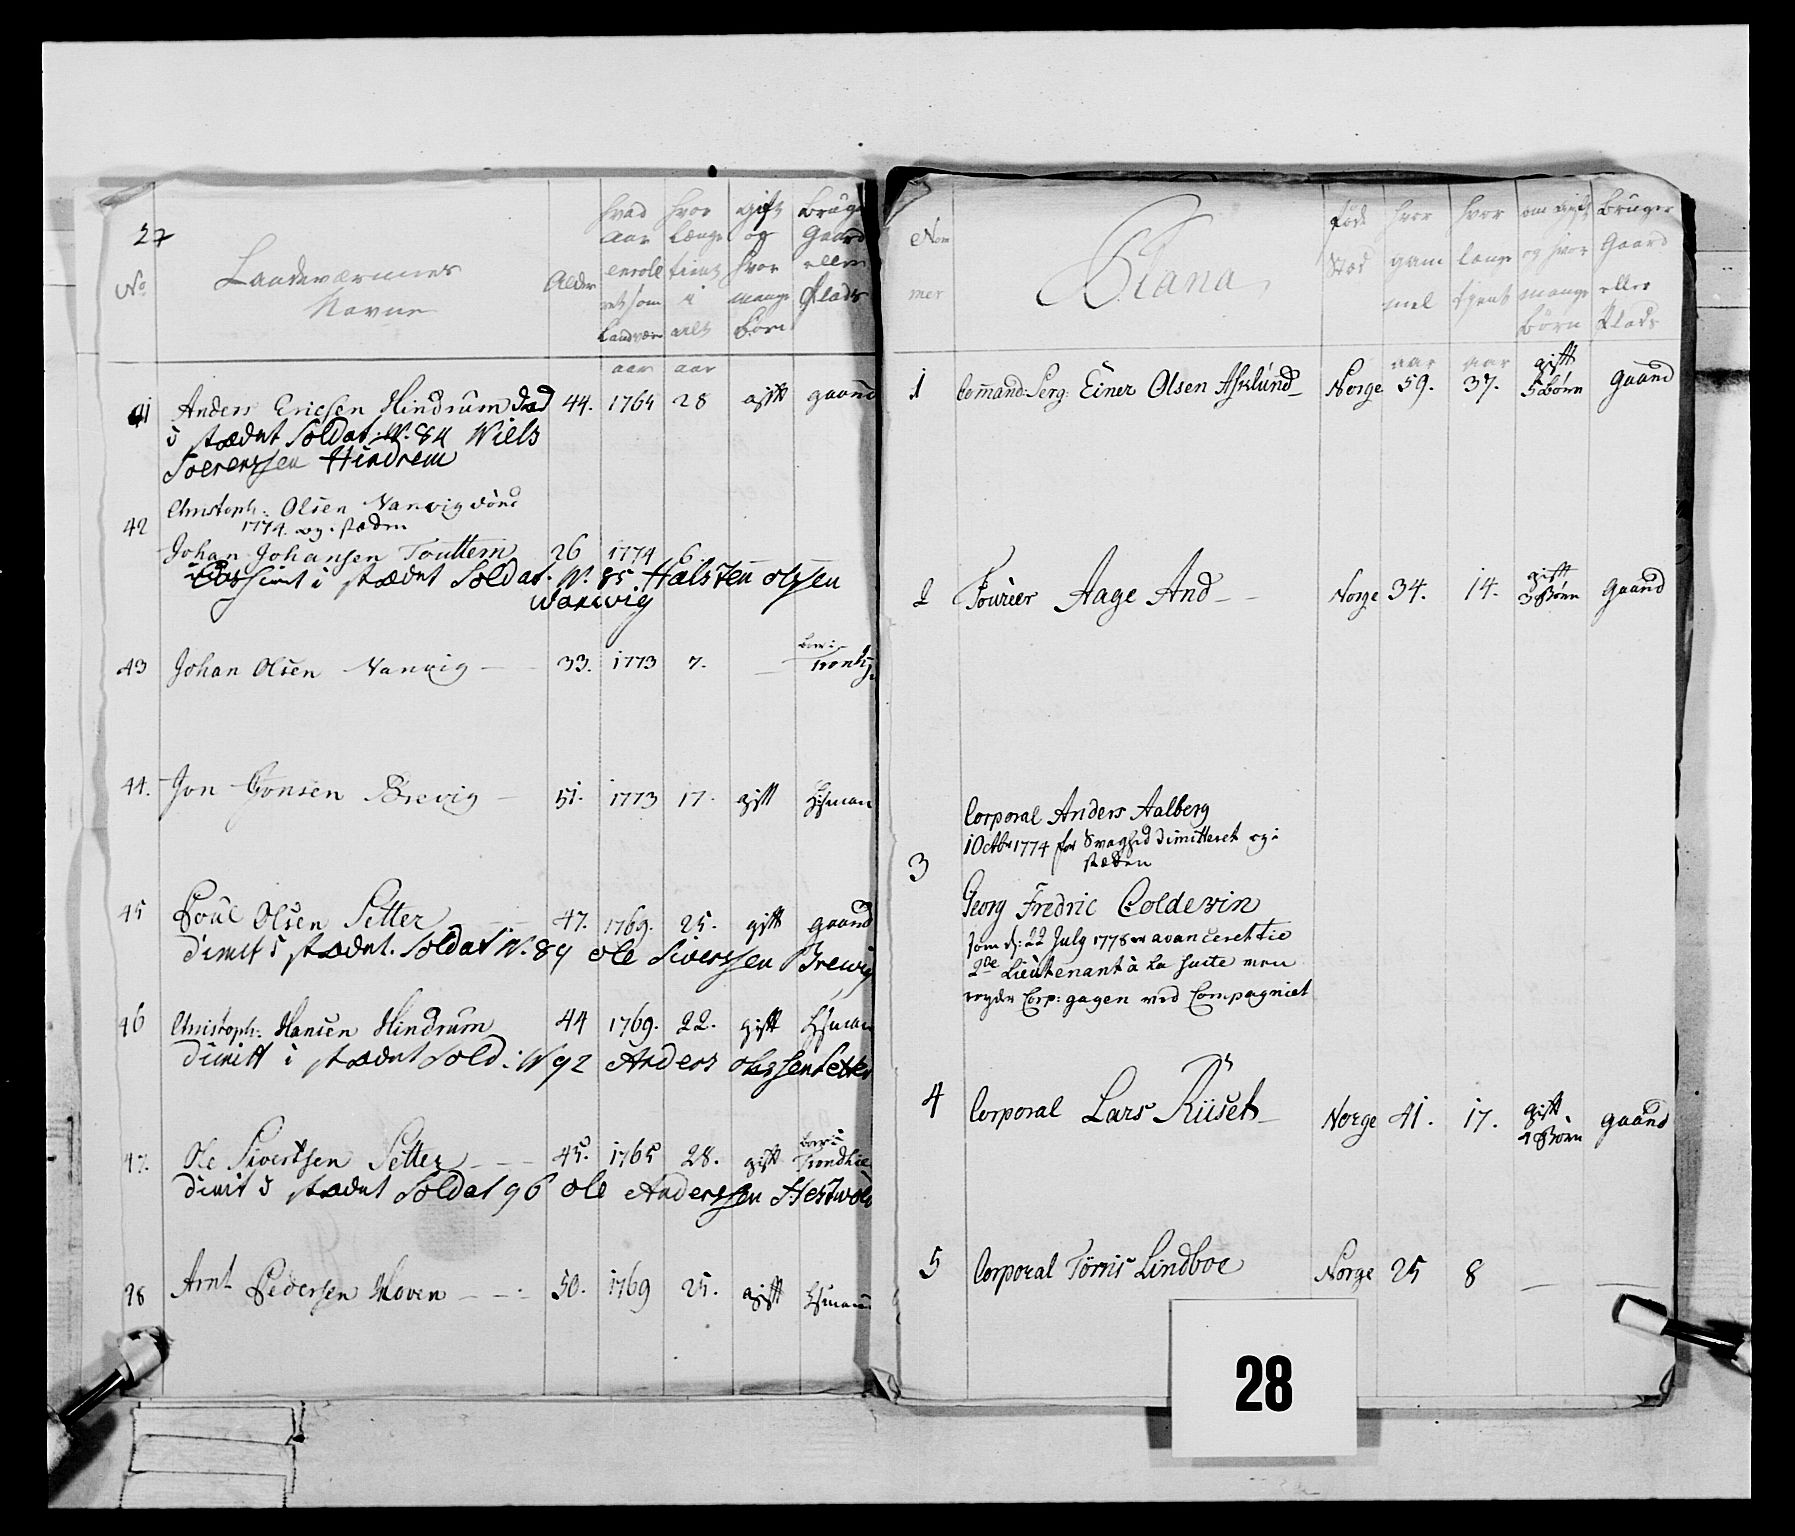 27
No
Landeværnnes
Navne
Alder
hvad
aar
enrole
ret som
Landværn
aar
hvor
længe
tient
i
alt
aar
gift
og
hvor
mange
børn
Bruger
Gaard
eller
Plads
41 Anders Ericsen Hindrum død 44. 1764 28 gift gaard
i stædet Soldat N. 84 Niels
Soerenssen Hindrem
42 Christoph. Olsen Vanvig
1774 og i stæden
Johan Johansen Touttem 26 1774 6.
i stædet Soldat N. 85 Halsten olssen
Wanwig
43 Johan Olsen Vanvig 33. 1773 7. —
44. Jon Jonsen Brevig — 51. 1773 17. gift Hsman
45 Poul Olsen Setter 47. 1769. 25. gift gaard
dimit i stædet Soldat N. 89 ole Siverssen Brewig
46 Christoph: Hansen Hindrum 44 1769. 22. gift Hsman
dimitt i stædet Sold: N 92 Anders olssen Setter
47. Ole Sivertsen Setter 45. 1765 28. gift
dimit i stædet Soldat 96 ole Anderssen Hestwold
28 Arnt Pedersen Hoven 50. 1769 25. gift Hsmand
Nom
mer
Diana
føde
Stæd
hvor
gam
mel
aar
hvor
længe
tjent
aar
om gift
og hvor
mange
børn
Bruger
Gaard
eller
Plads
1 Comand: Serg: Einer Olsen Asklund Norge 59. 37. gift 5 Børn gaard
2 Fourier Aage And Norge 34. 14. gift 3 Børn gaard
3 Corporal Anders Aalberg
1 Octbr 1774 for Svaghed dimitteret og i
stæden
Georg Fredric Coldevin
som d: 22 July 1778 er avanceret til
2de Lieutenant à la suite men
nyder Corp: gagen ved Compagniet
4 Corporal Lars Rüset Norge 41. 17. gift 4 Børn gaard
5 Corporal Tørris Lindboe Norge 25 8 — —
28